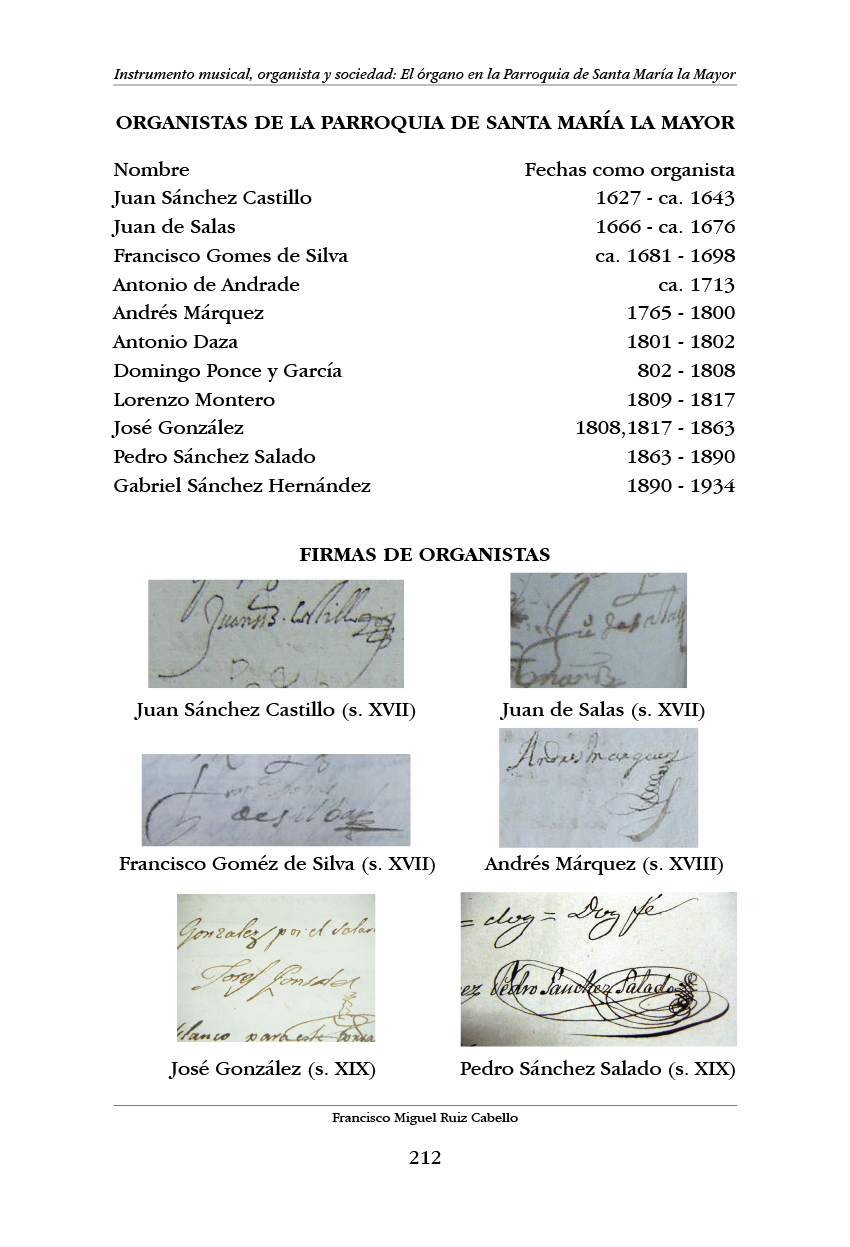 Instrumento musical, organista y sociedad: El órgano en la Parroquia de Santa María la Mayor
ORGANISTAS DE LA PARROQUIA DE SANTA MARÍA LA MAYOR
Nombre Fechas como organista
Juan Sánchez Castillo 1627 - ca. 1643
Juan de Salas 1666 - ca. 1676
Francisco Gomes de Silva ca. 1681 - 1698
Antonio de Andrade ca. 1713
Andrés Márquez 1765 - 1800
Antonio Daza 1801 - 1802
Domingo Ponce y García 802 - 1808
Lorenzo Montero 1809 - 1817
José González 1808,1817 - 1863
Pedro Sánchez Salado 1863 - 1890
Gabriel Sánchez Hernández 1890 - 1934
FIRMAS DE ORGANISTAS
Juan Sánchez Castillo (s. XVII)
Juan de Salas (s. XVII)
Andres marquez
de silbar
Francisco Goméz de Silva (s. XVII)
Andrés Márquez (s. XVIII)
Gonzalez por el salar
Josef Gonsalez
blanco para este
= doy = Doy fé
ez Pedro Sanchez Salado
José González (s. XIX)
Pedro Sánchez Salado (s. XIX)
Francisco Miguel Ruiz Cabello
212